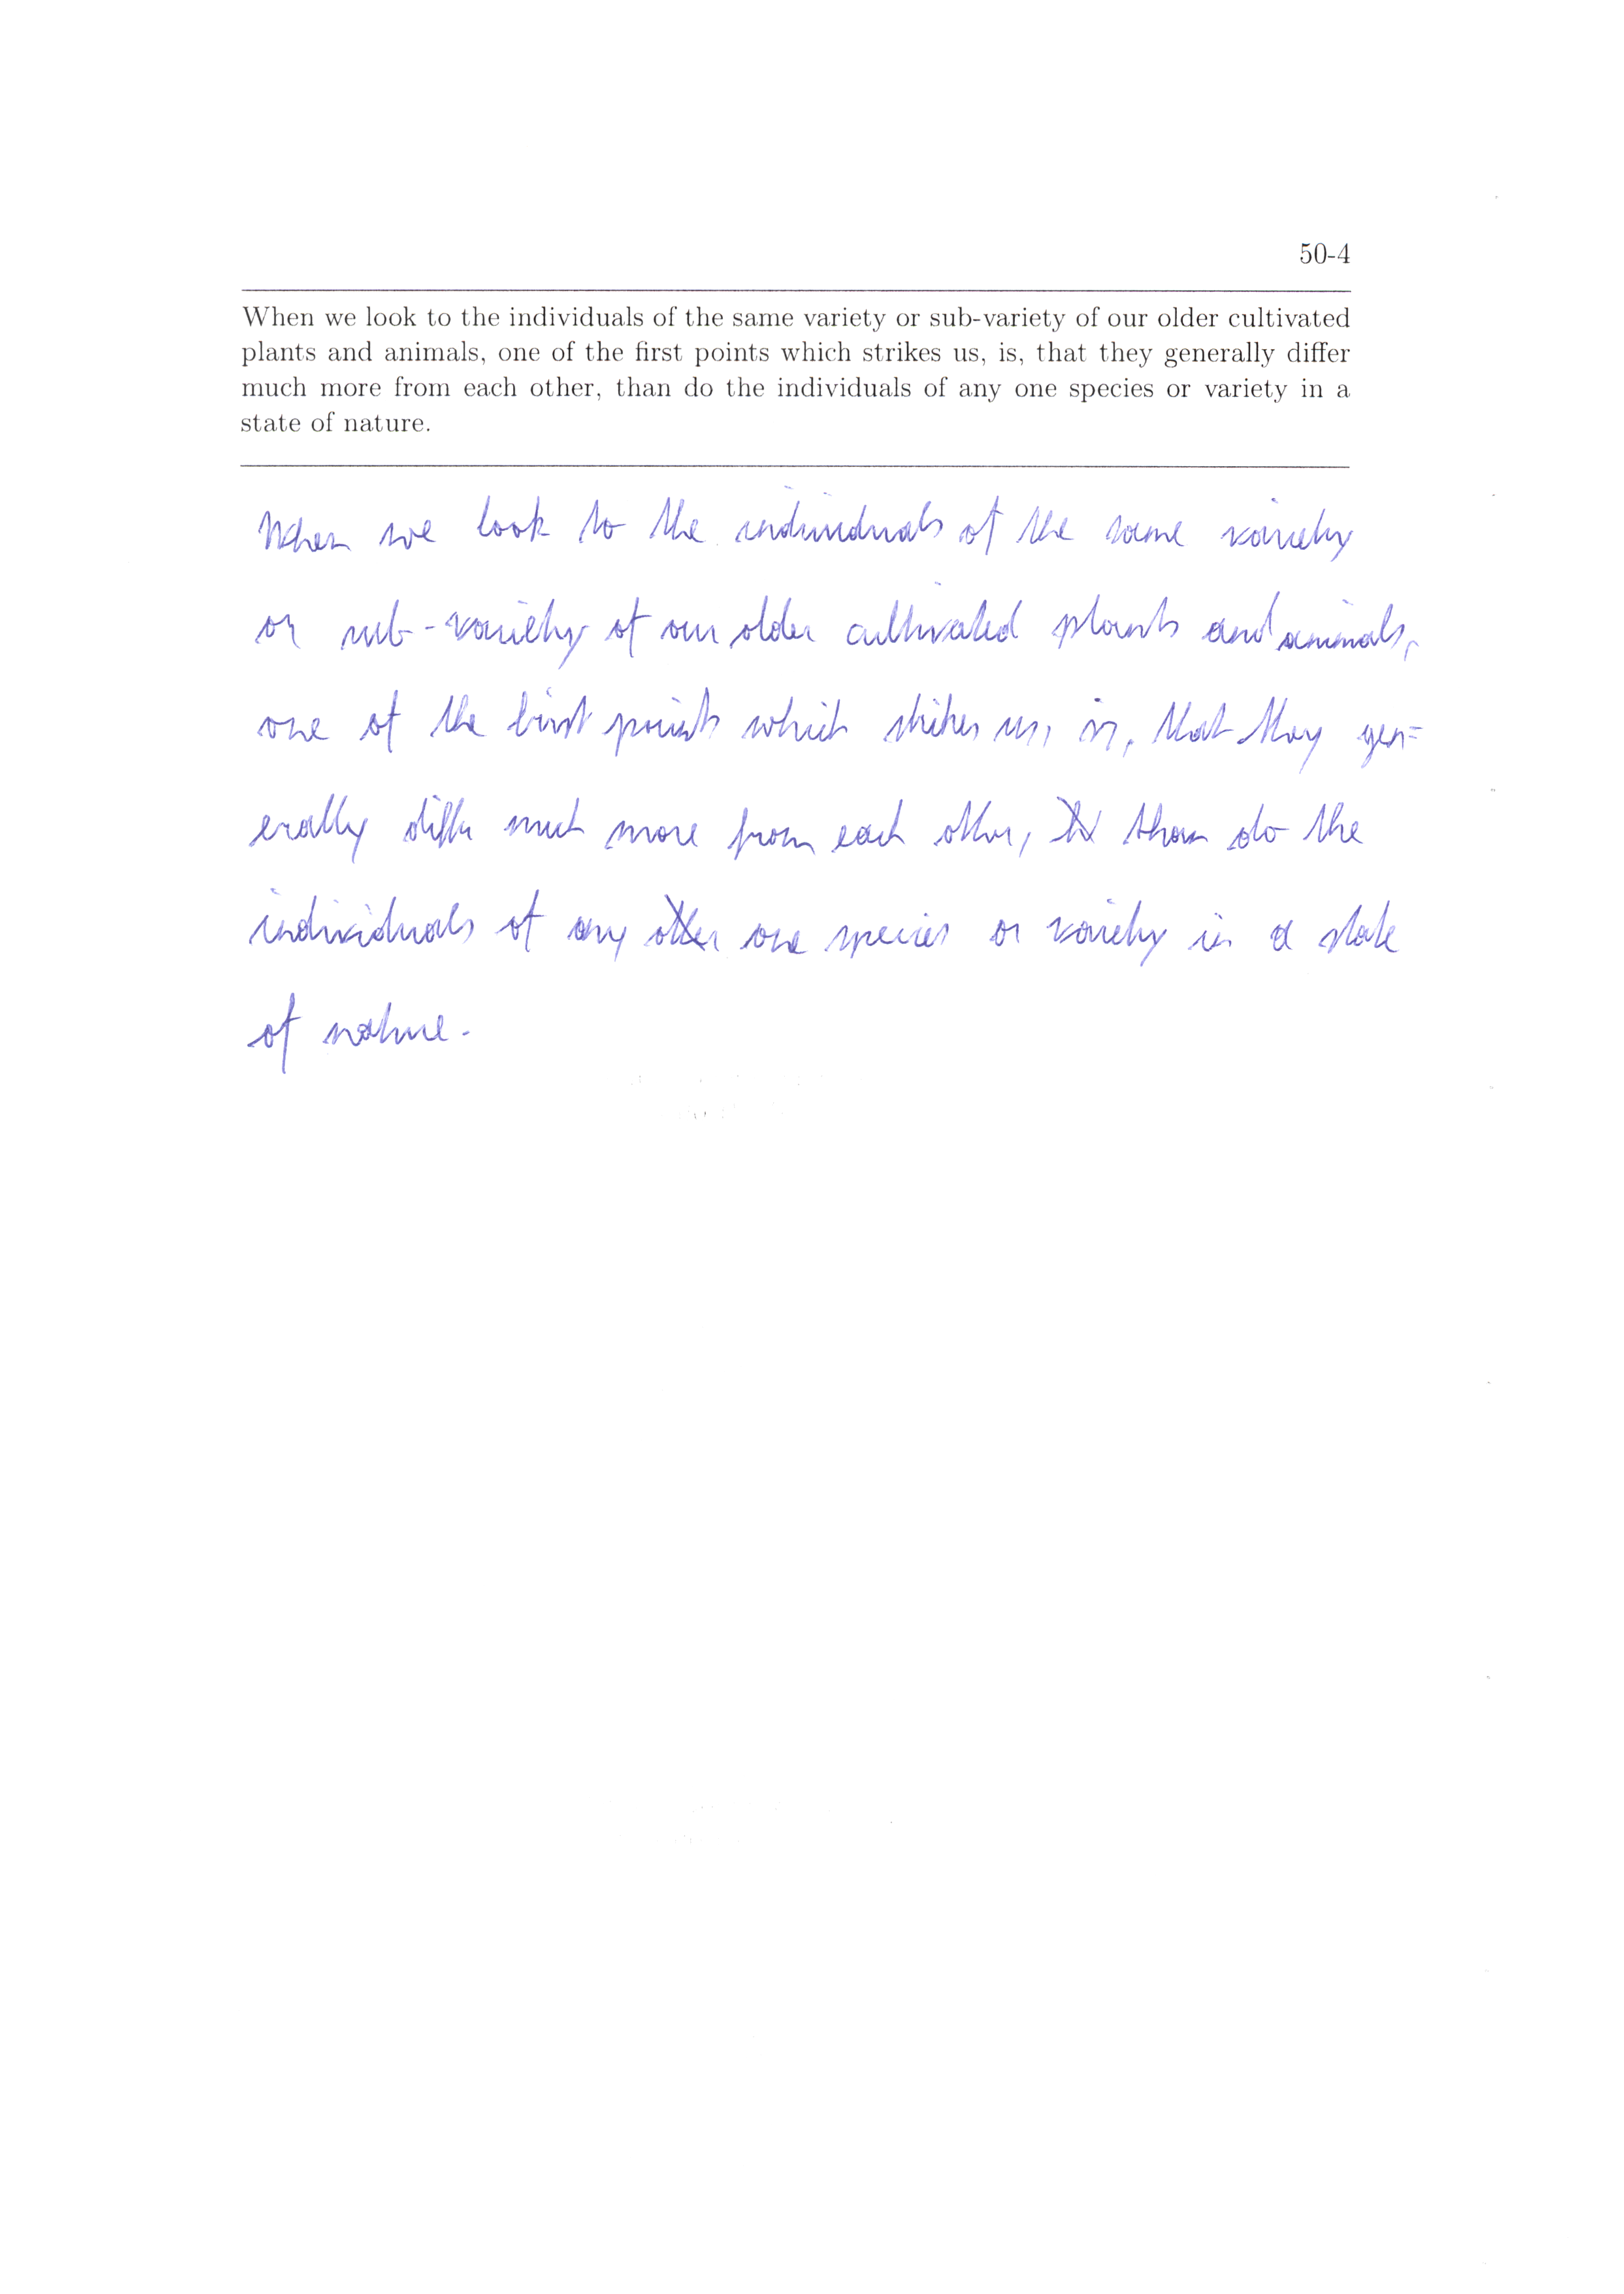 50-4
When we look to the individuals of the same variety or sub-variety of our older cultivated
plants and animals, one of the first points which strikes us, is, that they generally differ
much more from each other, than do the individuals of any one species or variety in a
state of nature.
When we look to the individuals of the same variety
or sub-variety of our older cultivated plants and animals,
one of the first points which strikes us, is, that they gen=
erally differ much more from each other, than do the
individuals of any other one species or variety in a state
of nature.